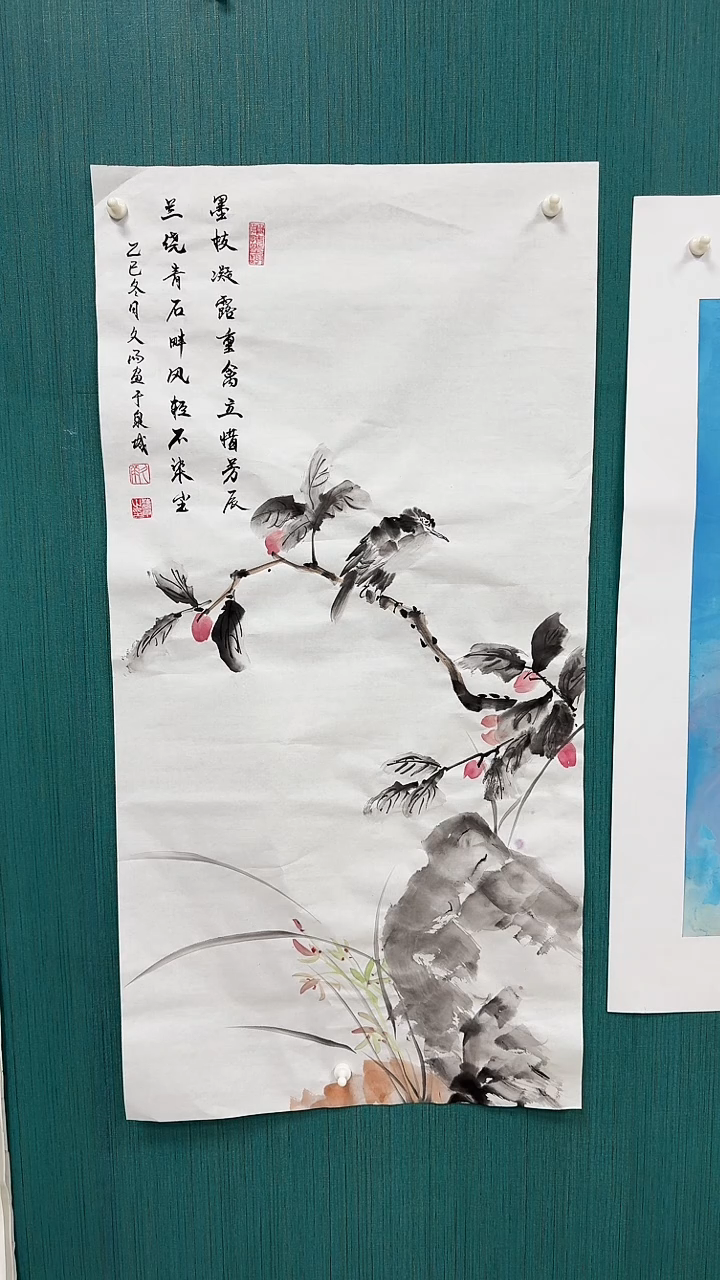 墨枝凝露重禽立惜芳辰
兰绕青石畔风轻不染尘
乙巳冬月文 画于泉城